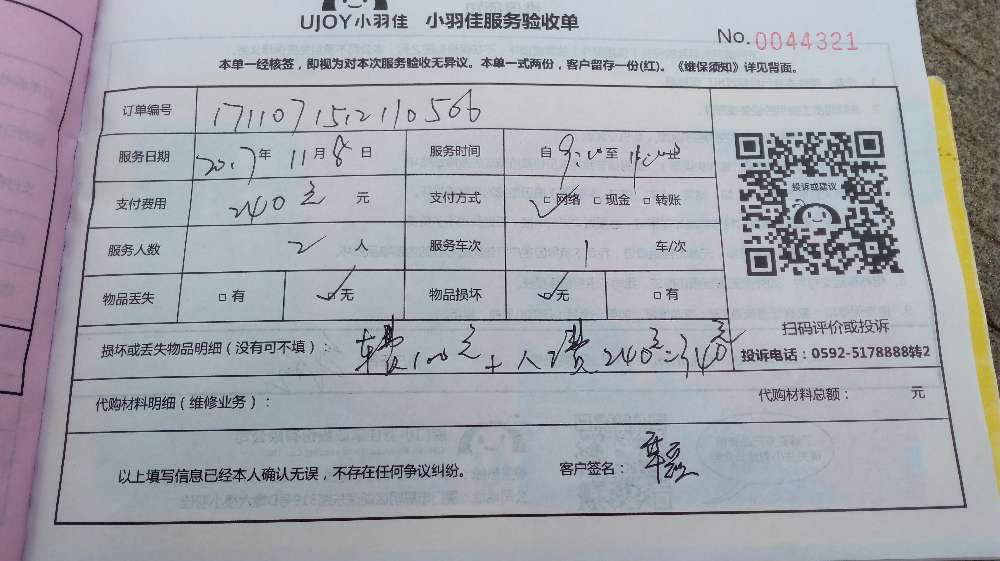 UJOY小羽佳 小羽佳服务验收单
No. 0044321
本单一经核签，即视为对本次服务验收无异议。本单一式两份，客户留存一份(红)。《维保须知》详见背面。
订单编号 171107152110566
服务日期 2017年 11月 8日 服务时间 自 9:00 至
支付费用 240元 元 支付方式 ☑网络 □现金 □转账
服务人数 2 人 服务车次 1 车/次
物品丢失 □有 ☑无 物品损坏 ☑无 □有
投诉或建议
扫码评价或投诉
投诉电话：0592-5178888转2
损坏或丢失物品明细（没有可不填）： 车费100元 + 人工费240元=340元
代购材料明细（维修业务）： 代购材料总额： 元
以上填写信息已经本人确认无误，不存在任何争议纠纷。 客户签名：